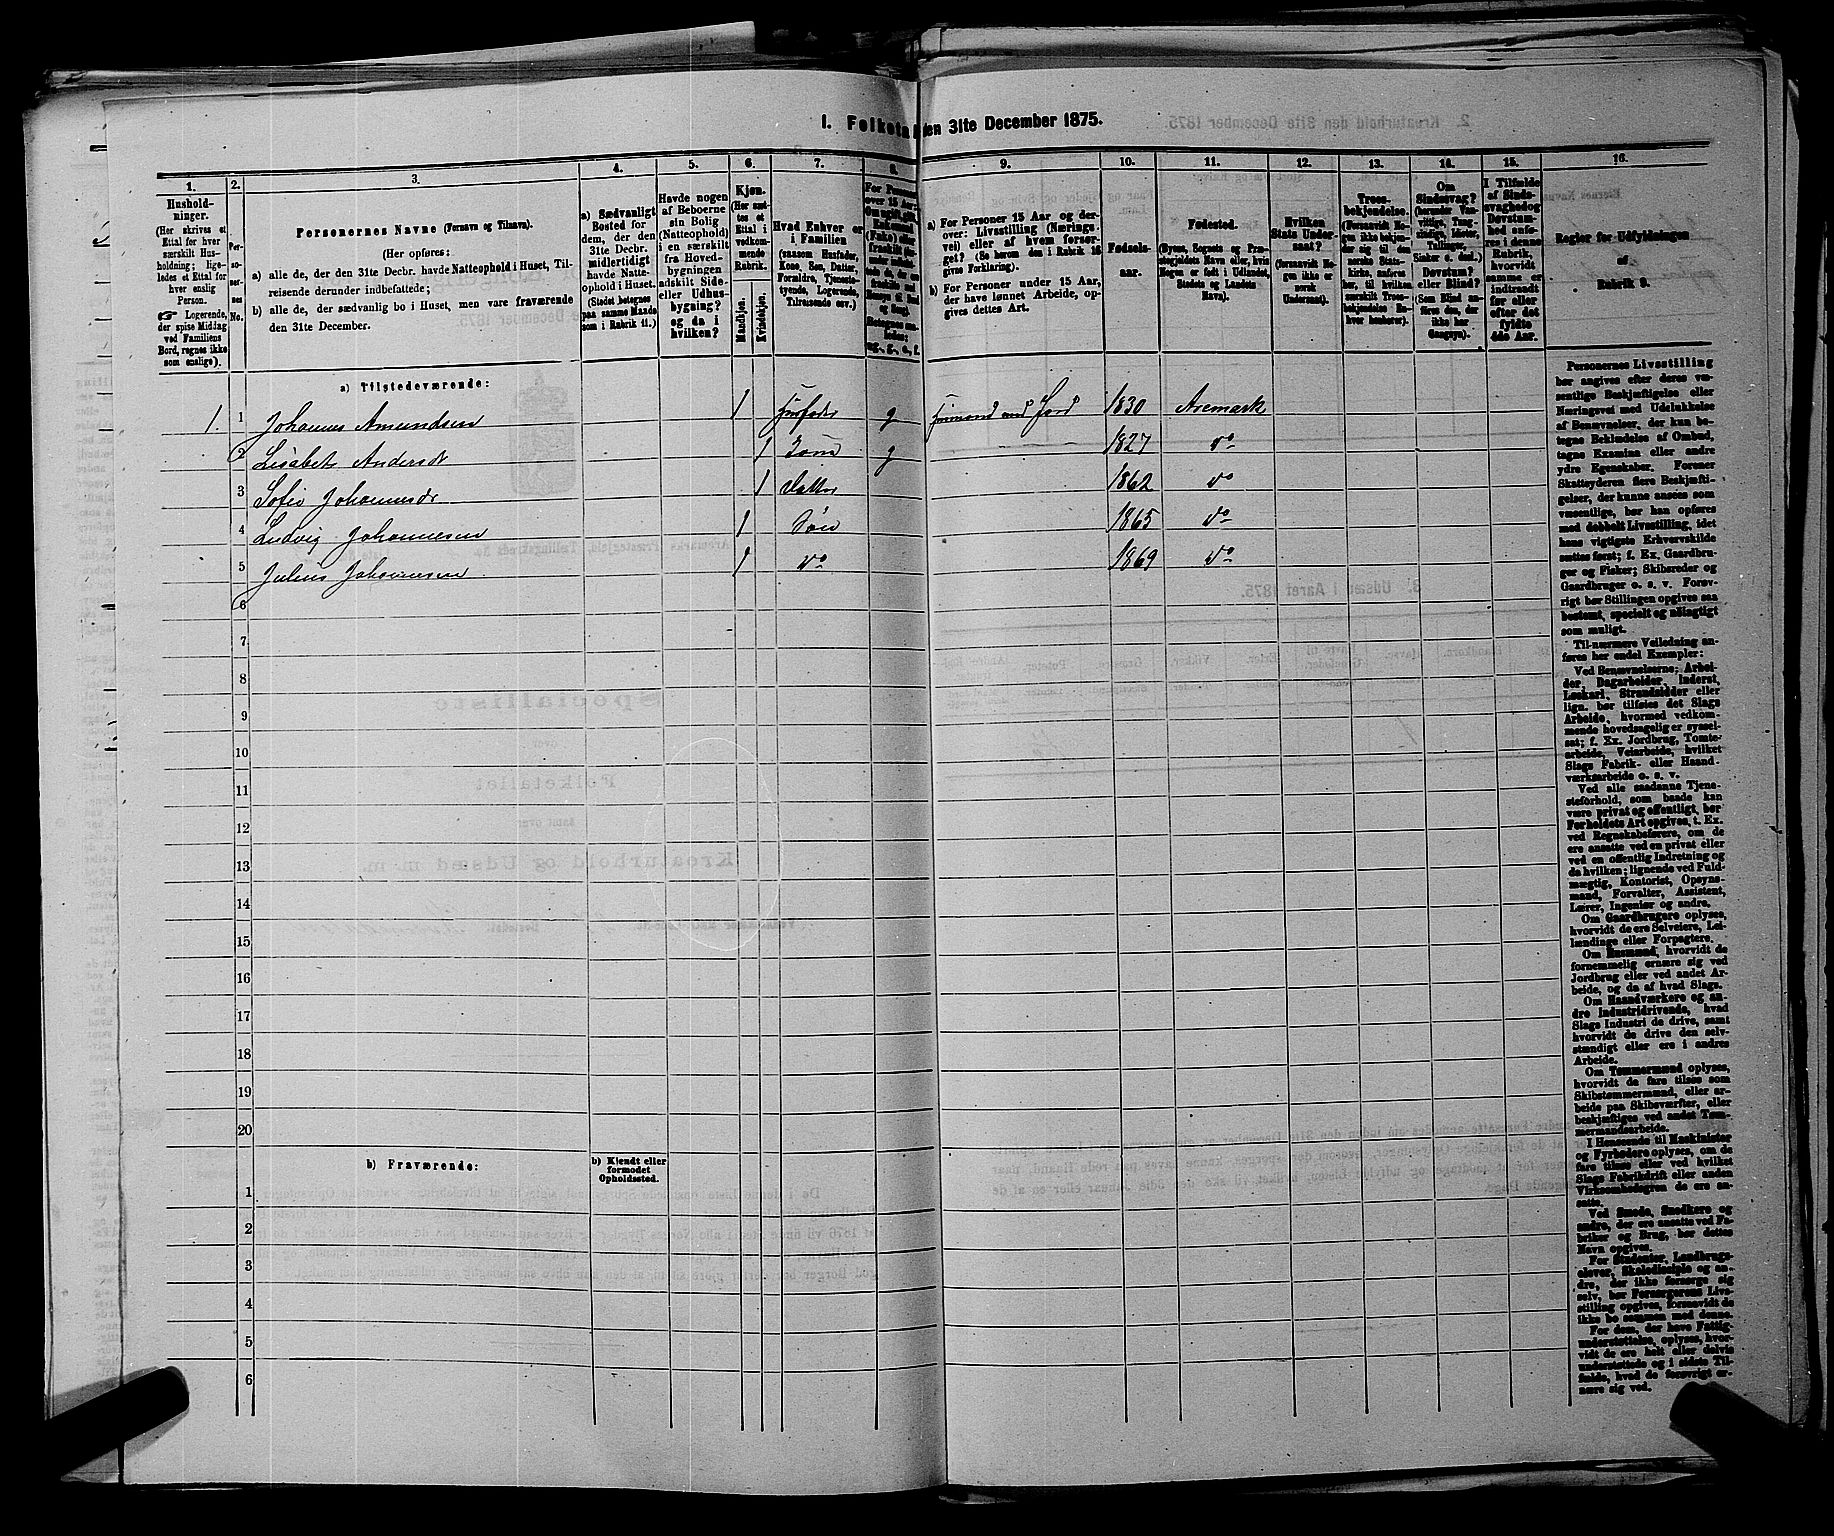 1. Folketa
den 31te December 1875.
1.
2.
3.
4.
5.
6.
7.
8.
9.
10.
11.
12.
13.
14.
15.
16.
Hushold-
ninger.
(Her skrives et
Ettal for hver
særskilt Hus-
holdning; lige-
ledes et Ettal for
hver enslig
Person.
☞ Logerende,
der spise Middag
ved Familiens
Bord, regnes ikke
som enslige).
Per-
so-
ner-
nes
No.
Personernes Navne (Fornavn og Tilnavn).
(Her opføres:
a) alle de, der den 31te Decbr. havde Natteophold i Huset, Til-
reisende derunder indbefattede;
b) alle de, der sædvanlig bo i Huset, men vare fraværende
den 31te December.
a) Sædvanligt
Bosted for
dem, der den
31te Decbr.
midlertidigt
havde Natte-
ophold i Huset.
(Stedet betegnes
paa samme Maade
som i Rubrik 11.)
Havde nogen
af Beboerne
sin Bolig
(Natteophold)
i en særskilt
fra Hoved-
bygningen
adskilt Side-
eller Udhus-
bygning?
og da i
hvilken?
Kjøn.
(Her sæt-
tes et
Ettal i
vedkom-
mende
Rubrik.
Mandkjøn.
Kvindekjøn.
Hvad Enhver er
i Familien
(saasom Husfader,
Kone, Søn, Datter,
Forældre, Tjeneste-
tyende, Logerende,
Tilreisende osv.)
a) For Personer 15 Aar og der-
over: Livsstilling (Nærings-
vei) eller af hvem forsør-
get? (Se herom den i Rubrik 16
givne Forklaring).
b) For Personer under 15 Aar,
der have lønnet Arbeide, op-
gives dettes Art.
Fødsels-
aar.
Fødested.
(Byens, Sognets og Præ-
stegjeldets Navn eller, hvis
Nogen er født i Udlandet,
Stedets og Landets
Navn).
Hvilken
Stats Under-
saat?
(forsaavidt No-
gen ikke er
norsk
Undersaat).
Troes-
bekjendelse.
(Forsaavidt No-
gen ikke bekjen-
der sig til den
norske Stats-
kirke, anføres
her, til hvilken
særskilt Troes-
bekjendelse En-
hver henhører).
Om
Sindssvag?
Døvstum?
eller Blind?
(Som Blind an-
føres den, der
ikke har
Gangsyn).
I Tilfælde
af Sinds-
svaghed og
Døvstum-
hed anfø-
res i denne
Rubrik,
hvorvidt
samme er
indtraadt
før eller
efter det
fyldte
4de Aar.
Regler for Udfyldningen
af
Rubrik 9.
a) Tilstedeværende:
1. 1 Johannes Amundsen 1 Husfader g Husmand med Jord 1830 Aremark
2 Lisabet Andersdt 1 Kone g 1827 do
3 Sofie Johannesdr 1 Datter 1862 do
4 Ludvig Johannesen 1 Søn 1865 do
5 Julius Johannesen 1 do 1869 do
6
7
8
9
10
11
12
13
14
15
16
17
18
19
20
b) Fraværende:
b) Kjendt eller
formodet
Opholdssted.
1
2
3
4
5
6
Personernes Livsstilling
bør angives efter deres væ-
sentlige Beskjæftigelse eller
Næringsvei med Udelukkelse
af Benævnelser, der kun be-
tegne Beklædelse af Ombud,
tagne Examina eller andre
ydre Egenskaber. Forener
Skatteyderen flere Beskjæfti-
gelser, der kunne ansees som
væsentlige, bør han opføres
med dobbelt Livsstilling, idet
hans vigtigste Erhvervskilde
sættes først; f. Ex. Gaardbru-
ger og Fisker; Skibsreder og
Gaardbruger o. s. v. Forøv-
rigt bør Stillingen opgives saa
bestemt, specielt og nøiagtigt
som muligt.
Til nærmere Veiledning an-
føres her endel Exempler:
Ved Benævnelserne; Arbei-
der, Dagarbeider, Inderst,
Løskarl, Strandsidder eller
lign. bør tilføies det Slags
Arbeide, hvormed vedkom-
mende hovedsagelig er syssel-
sat; f. Ex. Jordbrug, Tomte-
arbeide, Veiarbeide, hvilket
Slags Fabrik- eller Haand-
værksarbeide o. s. v.
Ved alle saadanne Tjene-
steforhold, som baade kan
være privat og offentligt, bør
Forholdets Art opgives, t. Ex.
ved Regnskabsførere, om de
ere ansatte ved en privat eller
ved en offentlig Indretning og
da hvilken; lignende ved Fuld-
mægtig, Kontorist, Opsyns-
mand, Forvalter, Assistent,
Lærer, Ingeniør og andre.
Om Gaardbrugere oplyses,
hvorvidt de ere Selveiere, Lei-
lændinge eller Forpagtere.
Om Husmænd, hvorvidt de
fornemmelig ernære sig ved
Jordbrug eller ved andet Ar-
beide, og da af hvad Slags.
Om Haandværkere og an-
dre Industridrivende, hvad
Slags Industri de drive, samt
hvorvidt de drive den selv-
stændigt eller ere i andres
Arbeide.
Om Tømmermænd oplyses,
hvorvidt de fare tilsøs som
Skibstømmermænd, eller ar-
beide paa Skibsværfter, eller
beskjæftiges ved andet Tøm-
mermandsarbeide.
I Henseende til Maskinister
og Fyrbødere oplyses, om de
fare tilsøs eller ved hvilket
Slags Fabrikdrift eller anden
Virksomhedsgren de ere an-
satte.
Ved Smede, Snedkere og
andre, der ere ansatte ved Fa-
briker og Brug, bør dettes
Navn opgives.
For Studenter, Landbrugs-
elever, Skoledisciple og an-
dre, der ikke forsørge sig
selv, bør Forsørgerens Livs-
stilling opgives, forsaavidt de
ikke bo sammen med denne.
For dem, der have Fattig-
understøttelse, oplyses, hvor-
vidt de ere helt eller delvis
understøttede og i sidste Til-
fælde, hvad de forøvrigt er-
nære sig ved.